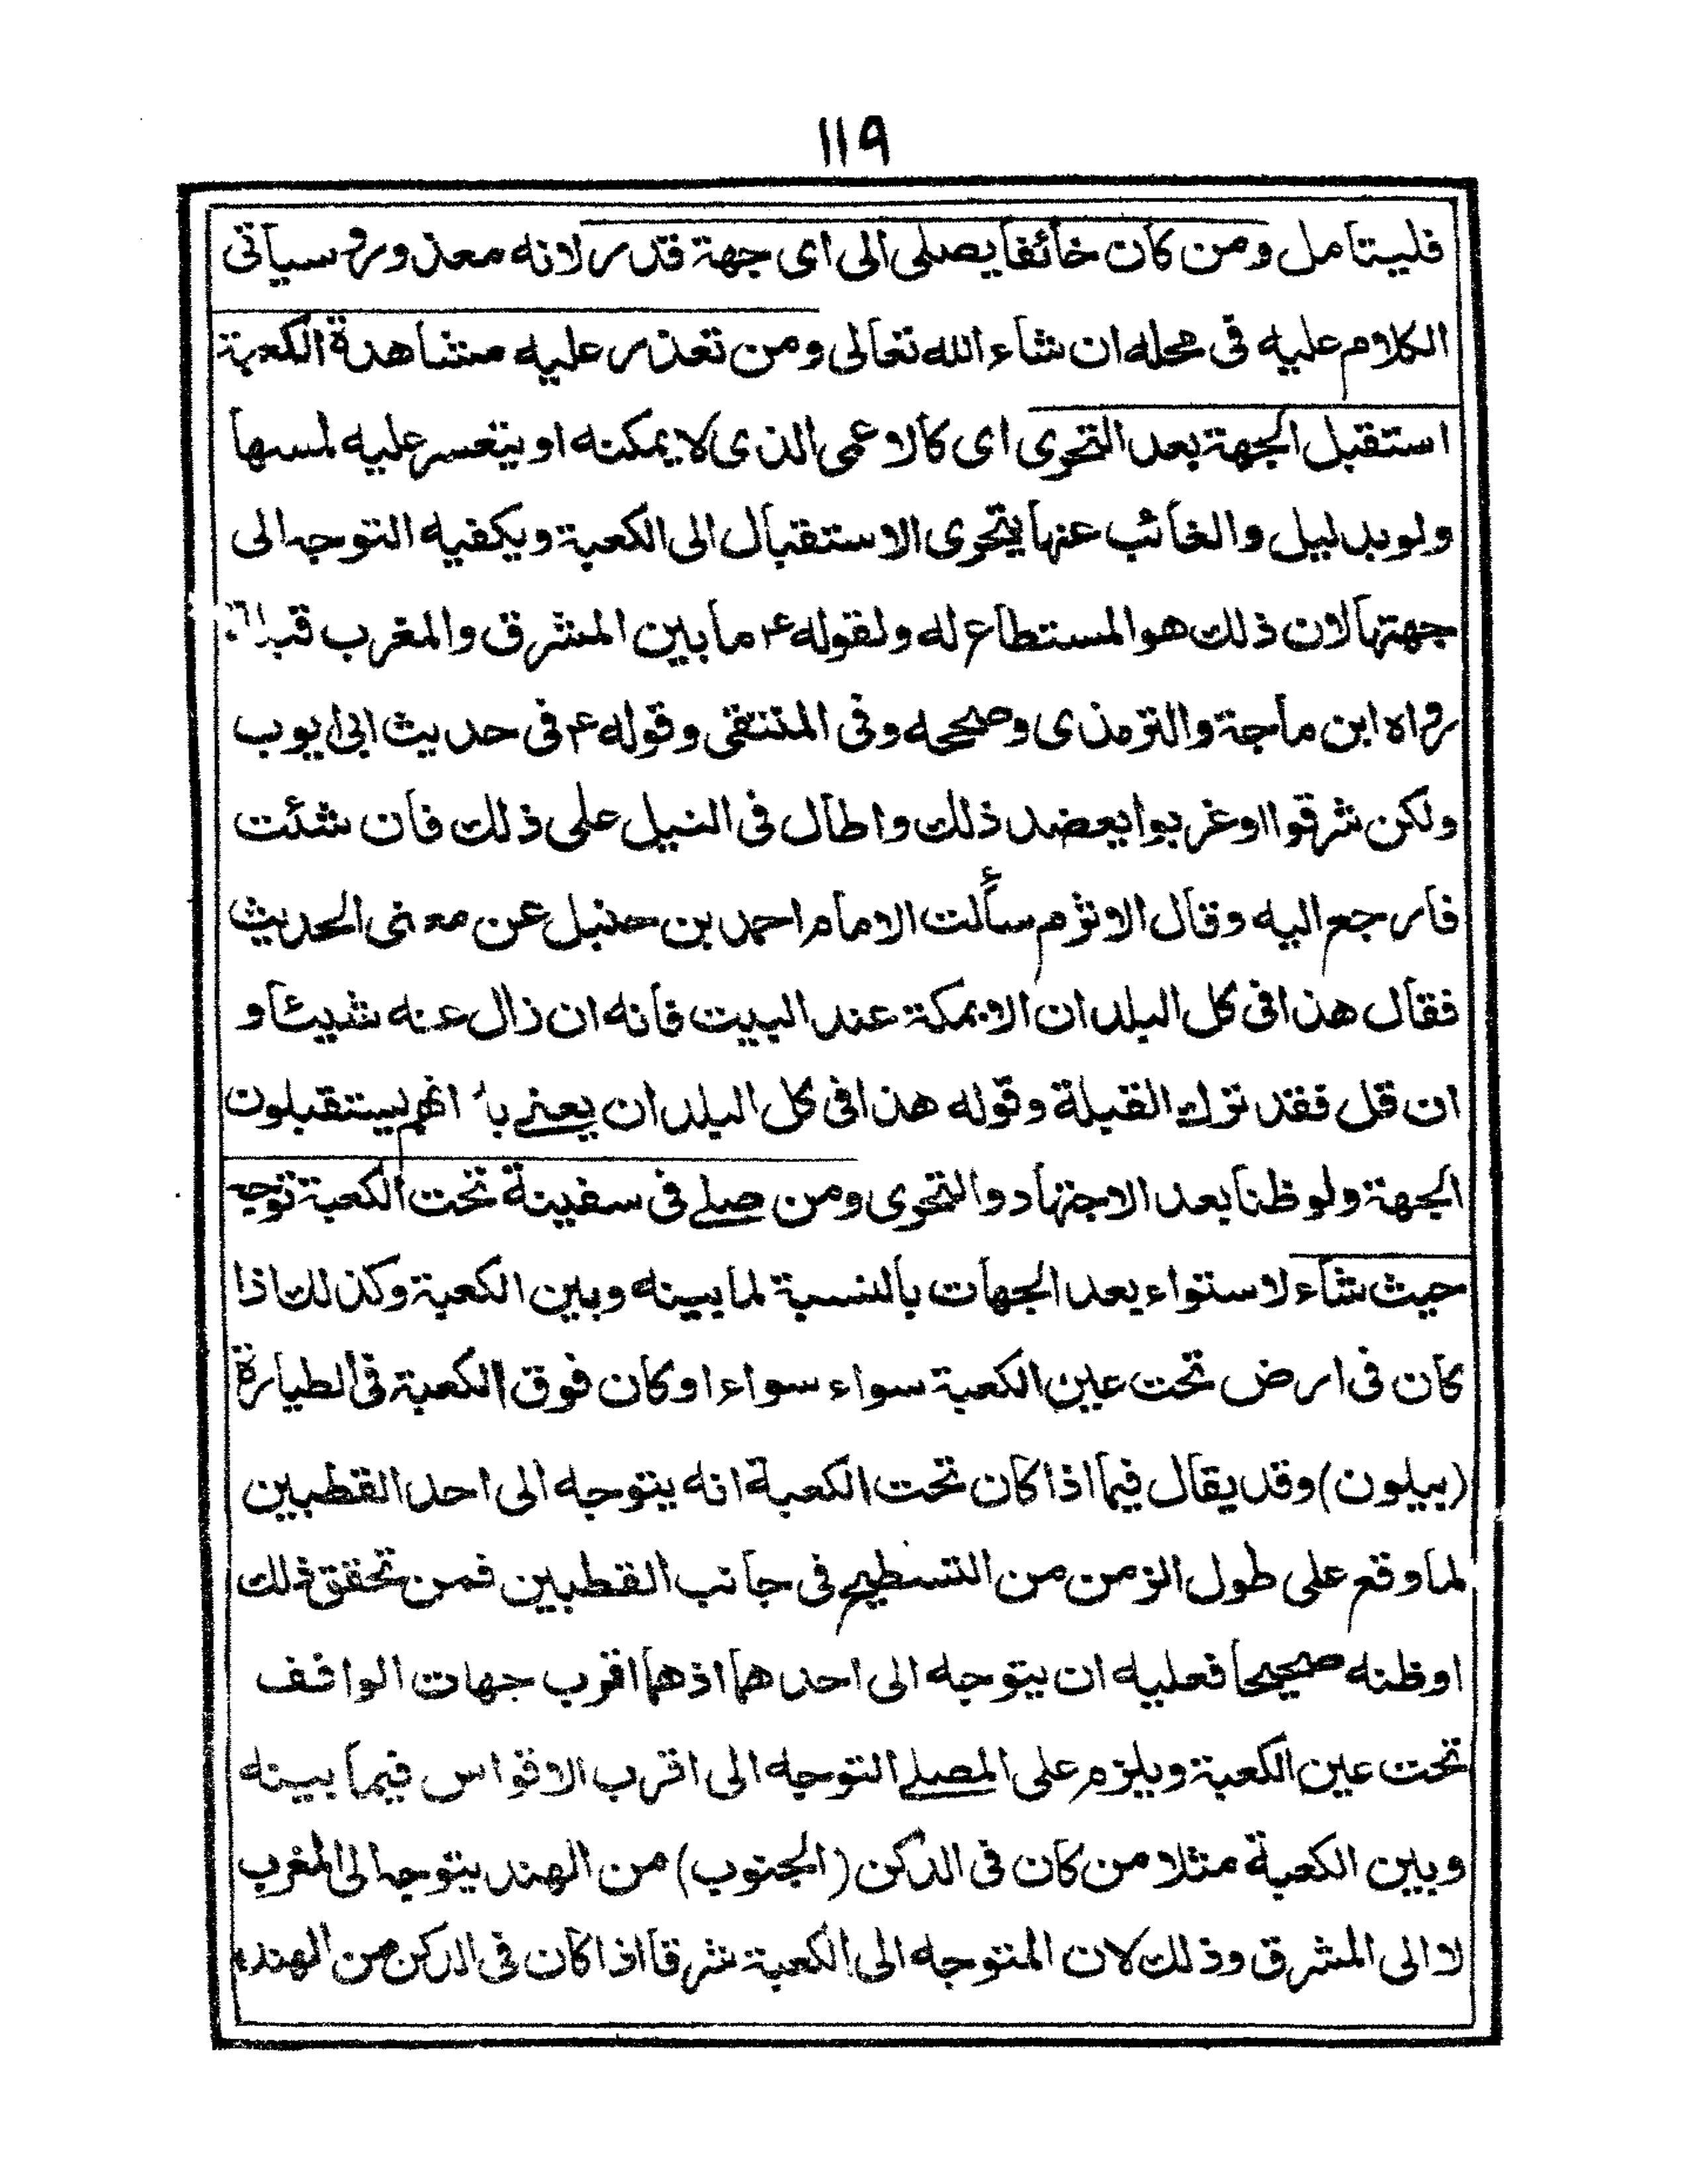 ١١٩
فليتامل ومن كان خائفا يصلي الى اى جهة قدر لانه معذور وسيأتى
الكلام عليه فى محله ان شاء الله تعالى ومن تعذر عليه مشاهدة الكعبة
استقبل الجهة بعد التحرى اى كالاعمى الذى لا يمكنه او يتعسر عليه لمسها
ولو بدليل والغائب عنها يتحرى الاستقبال الى الكعبة ويكفيه التوجه الى
جهتها لان ذلك هو المستطاع له ولقوله ع ما بين المشرق والمغرب
رواه ابن ماجة والترمذى وصححه وفى المنتقى وقوله ع فى حديث ابى ايوب
ولكن شرقوا او غربوا يعضد ذلك واطال فى النيل على ذلك فان شئت
فارجع اليه وقال الاثرم سألت الامام احمد بن حنبل عن معنى الحديث
فقال هذا فى كل البلدان الا بمكة عند البيت فانه ان زال عنه شيئا و
ان قل فقد ترك القبلة وقوله هذا فى كل البلدان يعنے انهم يستقبلون
الجهة ولو ظنا بعد الاجتهاد والتحرى ومن صلے فى سفينة تحت الكعبة توجه
حيث شاء لاستواء بعد الجهات بالنسبة لما بينه وبين الكعبة وكذلك اذا
كان فى ارض تحت عين الكعبة سواء سواء او كان فوق الكعبة فى الطيارة
(بيلون) وقد يقال فيما اذا كان تحت الكعبة انه يتوجه الى احد القطبين
لما وقع على طول الزمن من التسطيح فى جانب القطبين فمن تحقق ذلك
او ظنه صحيحا فعليه ان يتوجه الى احدهما اذ هما اقرب جهات الواقف
تحت عين الكعبة ويلزم على المصلے التوجه الى اقرب الاقواس فيما بينه
وبين الكعبة مثلا من كان فى الدكن (الجنوب) من الهند يتوجه الى المغرب
لا الى المشرق وذلك لان المتوجه الى الكعبة شرقا اذا كان فى الدكن من الهند